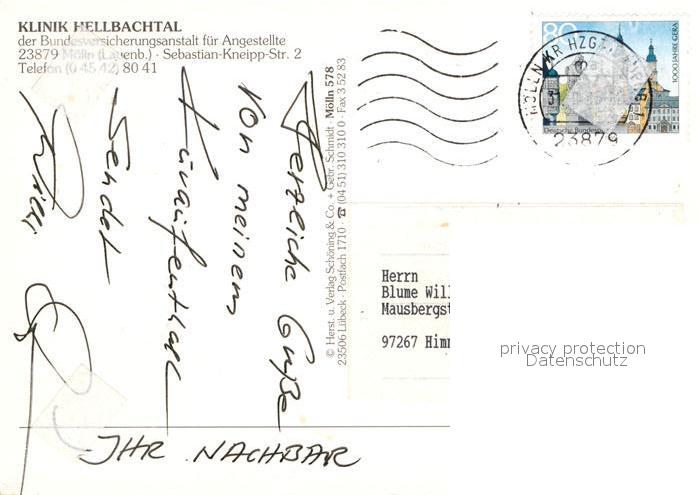 KLINIK HELLBACHTAL
der Bundesversicherungsanstalt für Angestellte
23879 Mölln (Lauenb.) · Sebastian-Kneipp-Str. 2
Telefon (0 45 42) 80 41
Herzliche Grüße
von meinem
Kuraufenthalt
sendet
Willi
IHR NACHBAR
© Herst. u. Verlag Schöning & Co. + Gebr. Schmidt · Mölln 578
23506 Lübeck · Postfach 1710 · ☎ (04 51) 310 310 0 · Fax 3 52 83
80
1000 JAHRE GERA
Deutsche Bundespost
MÖLLN KR HZGT
23879
Herrn
Blume Wil
Mausbergst
97267 Him
privacy protection
Datenschutz